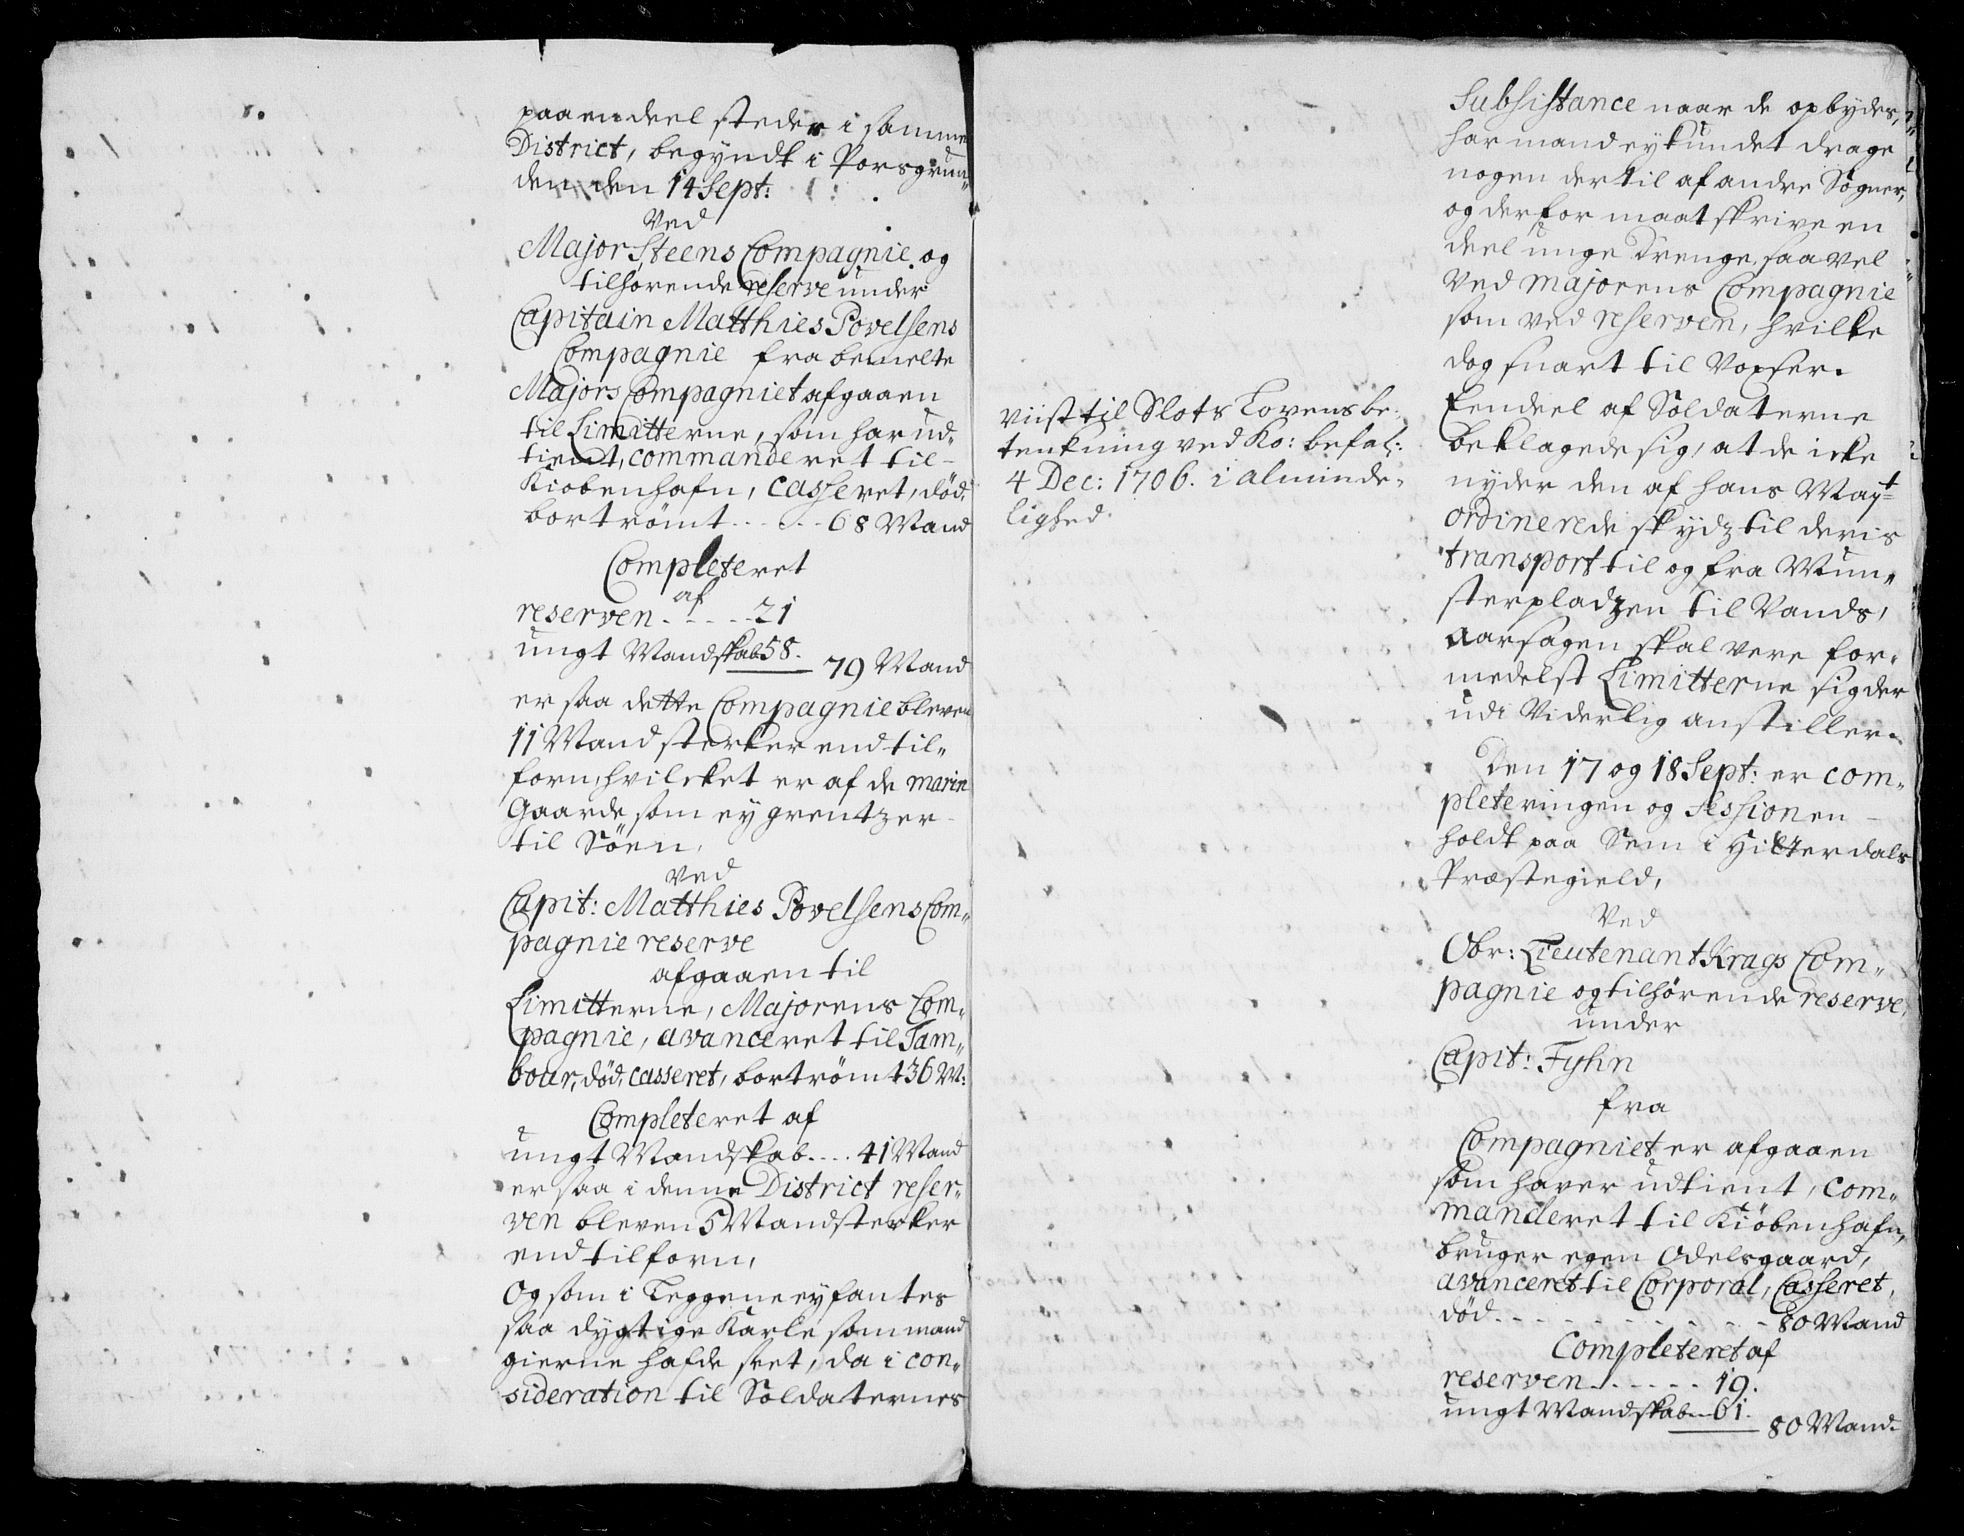 paa en deel steder i samme
District, begyndt i Porsgrun„
den den 14 Sept:
Ved
Major Steens Compagnie og
tilhørende reserve under
Capitain Matthies Povelsens
Compagnie fra bemelte
Majors Compagniet afgaaen
til Limitterne, som har ud„
tient, commanderet til
Kiøbenhafn, casseret, död,
bortrömt - - - - - 68 Mand
Completeret
af
reserven - - - - - 21
ungt Mandskab 58.
79 Mand
er saa dette Compagnie bleven
11 Mand sterker end til„
forn, hvilcket er af de marin
Gaarde som ey grentzer
til Söen,
Ved
Capit: Matthies Povelsens Com„
pagnie reserve
afgaaen til
Limitterne, Majorens Com„
pagnie, avanceret til Tam„
bour, död, casseret, bortrömt 36 M:
Completeret af
ungt Mandskab - - - - 41 Mand
er saa i denne District reser„
ven bleven 5 Mand sterker
end tilforn,
Og som i Leggene ey fantes
saa dygtige Karle som mand
gierne hafde seet, da i con„
sideration til Soldaternes
Subsistance naar de opbydes,
har mand ey kundet drage
nogen dertil af andre Sogner,
og derfor maat skrive en
deel unge Drenge, saavel
Ved Majorens Compagnie
som ved reserven, hvilke
dog snart til Voxser.
Eendeel af Soldaterne
beklagede sig, at de icke
nyder den af hans Mayt
ordinerede skydz til deris
transport til og fra Mun„
sterpladzen til Vands,
Aarsagen skal vere for„
medelst Limitterne sig der
udi Viderlig anstiller.
viist til Slots Lovens be„
tenkning ved Ko: befal:
4 Dec: 1706. i alminde„
lighed.
Den 17 og 18 Sept: er com„
pleteringen og Sessionen
holdt paa Sem i Hitterdals
Præstegield,
Ved
Obr: Lieutenant Krags Com„
pagnie og tilhørende reserve,
under
Capit: Fyhn
fra
Compagniet er afgaaen
som haver udtient, com„
manderet til Kiöbenhafn,
bruger egen Odelsgaard,
avanceret til Corporal, Casseret,
död - - - - - - - - - - 80 Mand
Completeret af
reserven - - - - - - 19.
ungt Mandskab - 61.
80 Mand